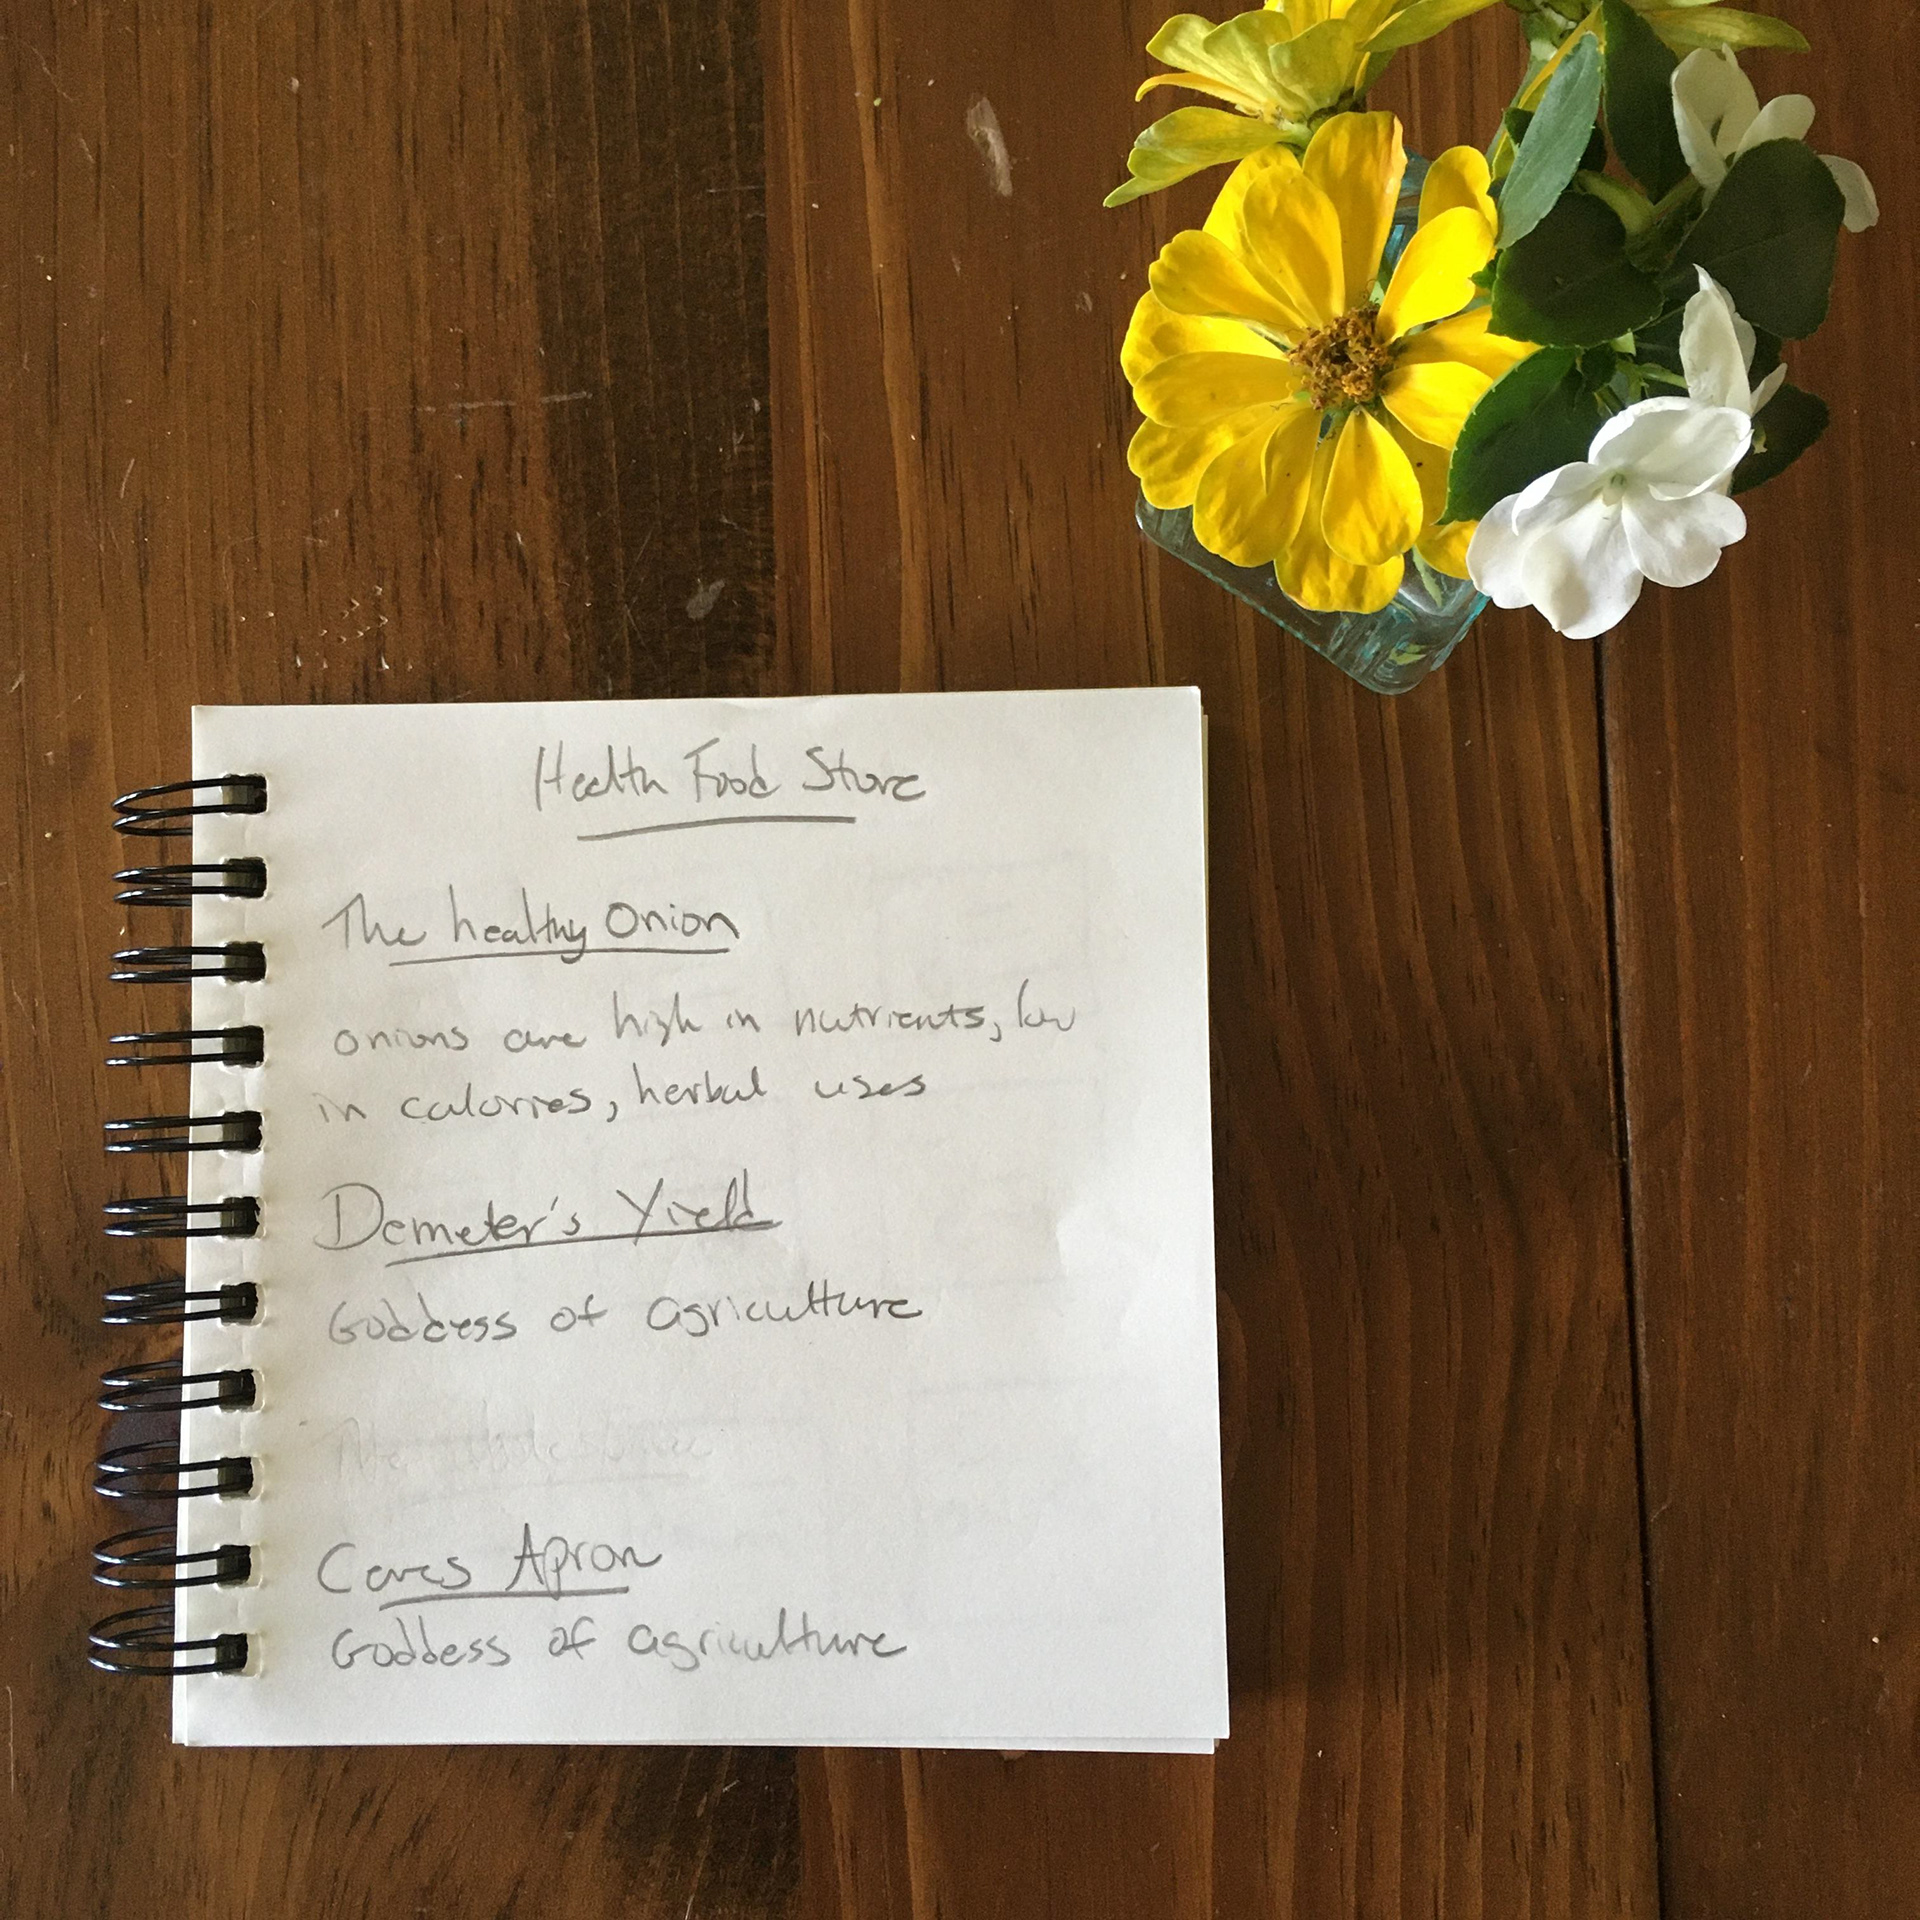 Health Food Store
The healthy Onion
onions are high in nutrients, low
in calories, herbal uses
Demeter's Yield
Goddess of agriculture
The
Ceres Apron
Goddess of agriculture